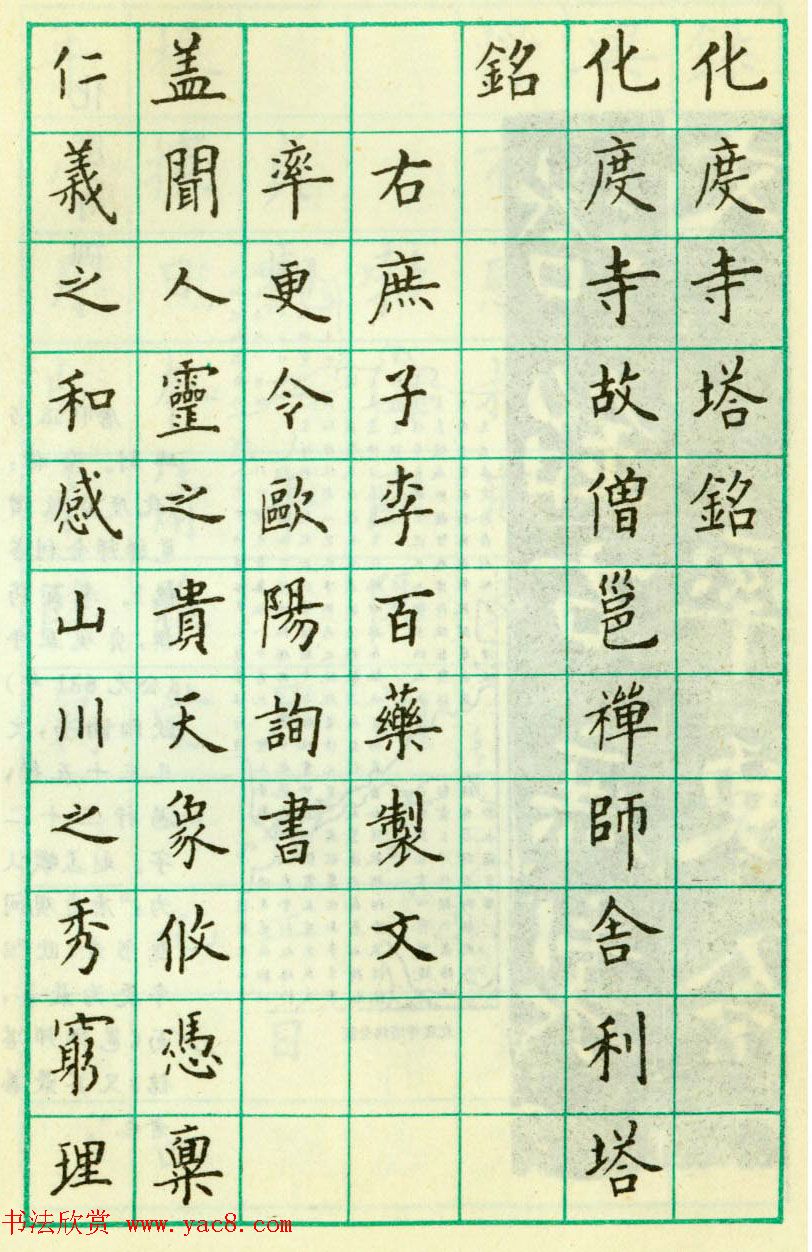 化度寺塔銘
化度寺故僧邕禪師舍利塔
銘
右庶子李百藥製文
率更令歐陽詢書
盖聞人靈之貴天象攸憑稟
仁義之和感山川之秀窮理
书法欣赏 www.yac8.com